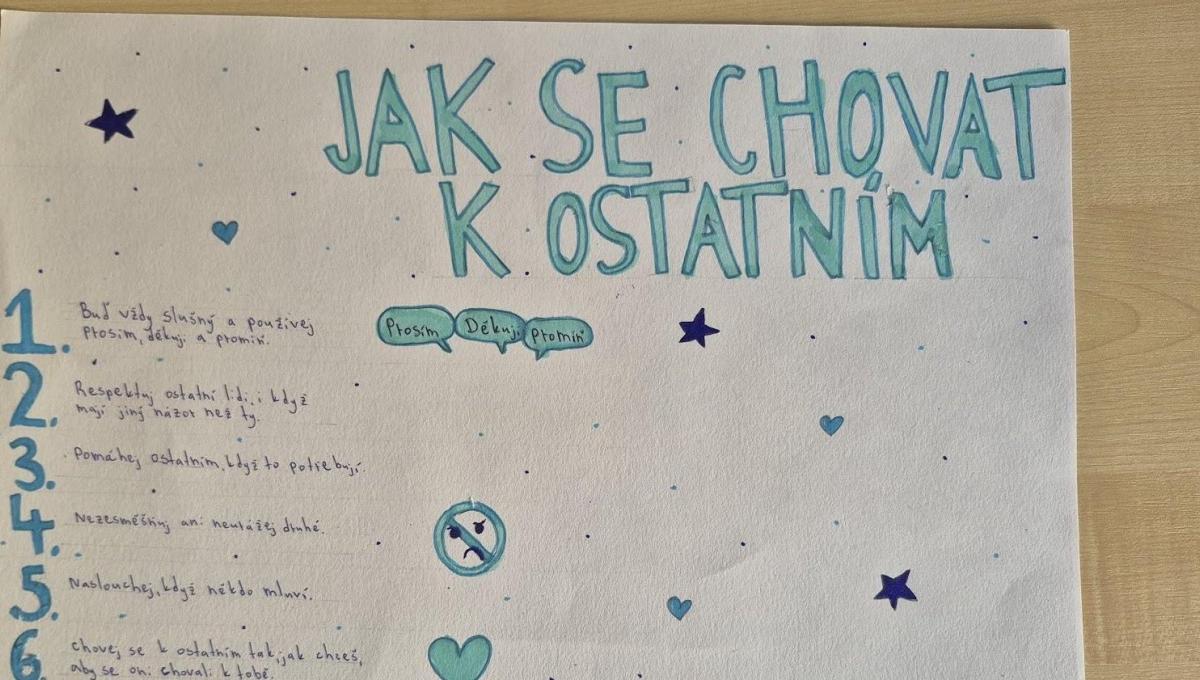 JAK SE CHOVAT
K OSTATNÍM
1. Buď vždy slušný a používej
prosím, děkuji a promiň.
Prosím Děkuji Promiň
2. Respektuj ostatní lidi, i když
mají jiný názor než ty.
3. Pomáhej ostatním, když to potřebují.
4. Nezesměšňuj ani neurážej druhé.
5. Naslouchej, když někdo mluví.
6. Chovej se k ostatním tak, jak chceš,
aby se oni chovali k tobě.